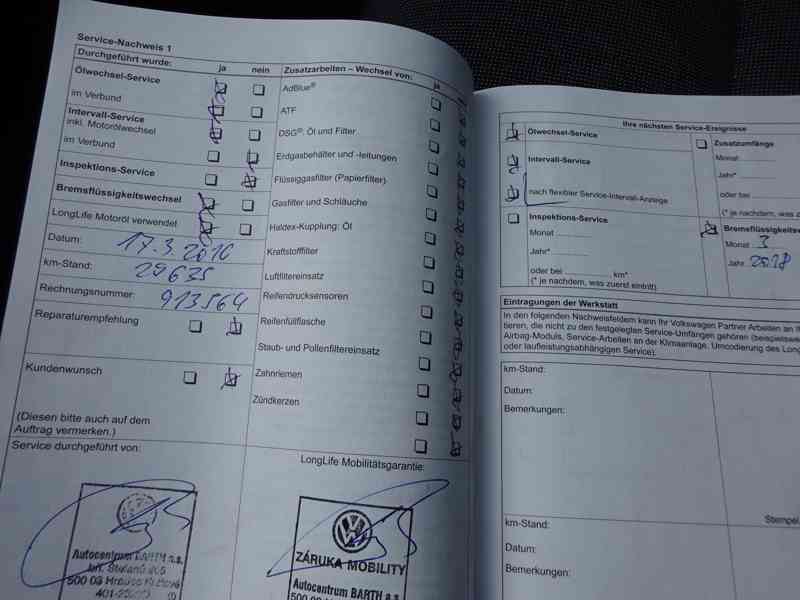 Service-Nachweis 1
Durchgeführt wurde:
ja nein
Ölwechsel-Service
im Verbund
Intervall-Service
inkl. Motorölwechsel
im Verbund
Inspektions-Service
Bremsflüssigkeitswechsel
LongLife Motoröl verwendet
Datum: 17.3.2016
km-Stand: 29635
Rechnungsnummer: 913564
Reparaturempfehlung
Kundenwunsch
(Diesen bitte auch auf dem
Auftrag vermerken.)
Service durchgeführt von:
Autocentrum BARTH a.s.
Zusatzarbeiten – Wechsel von: ja
AdBlue®
ATF
DSG®: Öl und Filter
Erdgasbehälter und -leitungen
Flüssiggasfilter (Papierfilter)
Gasfilter und Schläuche
Haldex-Kupplung: Öl
Kraftstofffilter
Luftfiltereinsatz
Reifendrucksensoren
Reifenfüllflasche
Staub- und Pollenfiltereinsatz
Zahnriemen
Zündkerzen
LongLife Mobilitätsgarantie:
ZÁRUKA MOBILITY
Autocentrum BARTH a.s.
Ihre nächsten Service-Ereignisse
Ölwechsel-Service
Intervall-Service
nach flexibler Service-Intervall-Anzeige
Inspektions-Service
Monat
Jahr*
oder bei km*
(* je nachdem, was zuerst eintritt)
Zusatzumfänge
Monat
Jahr*
oder bei
(* je nachdem, was zu
Bremsflüssigkeitsw
Monat 3
Jahr 2018
Eintragungen der Werkstatt
In den folgenden Nachweisfeldern kann Ihr Volkswagen Partner Arbeiten an Ih
tieren, die nicht zu den festgelegten Service-Umfängen gehören (beispielswe
Airbag-Moduls, Service-Arbeiten an der Klimaanlage, Umcodierung des Long
oder laufleistungsabhängigen Service).
km-Stand:
Datum:
Bemerkungen:
Stempel
km-Stand:
Datum:
Bemerkungen: